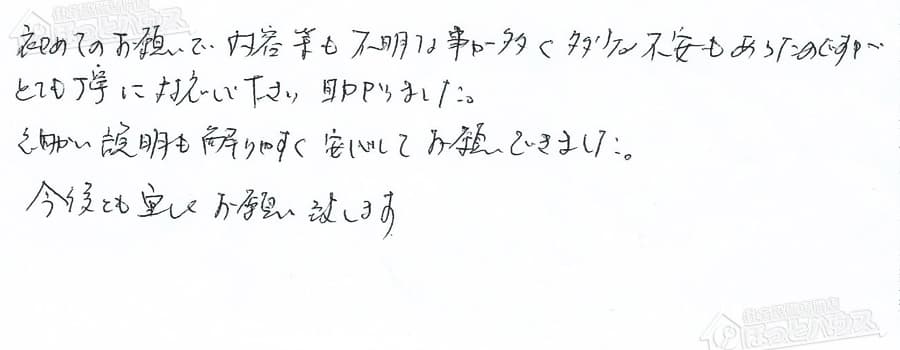 初めてのお願いで 内容等も不明な事が多く 多少不安もあったのですが
とても丁寧に対応して下さり 助かりました。
細かい説明も解りやすく 安心してお願いできました。
今後とも宜しくお願い致します
ほっとハウス